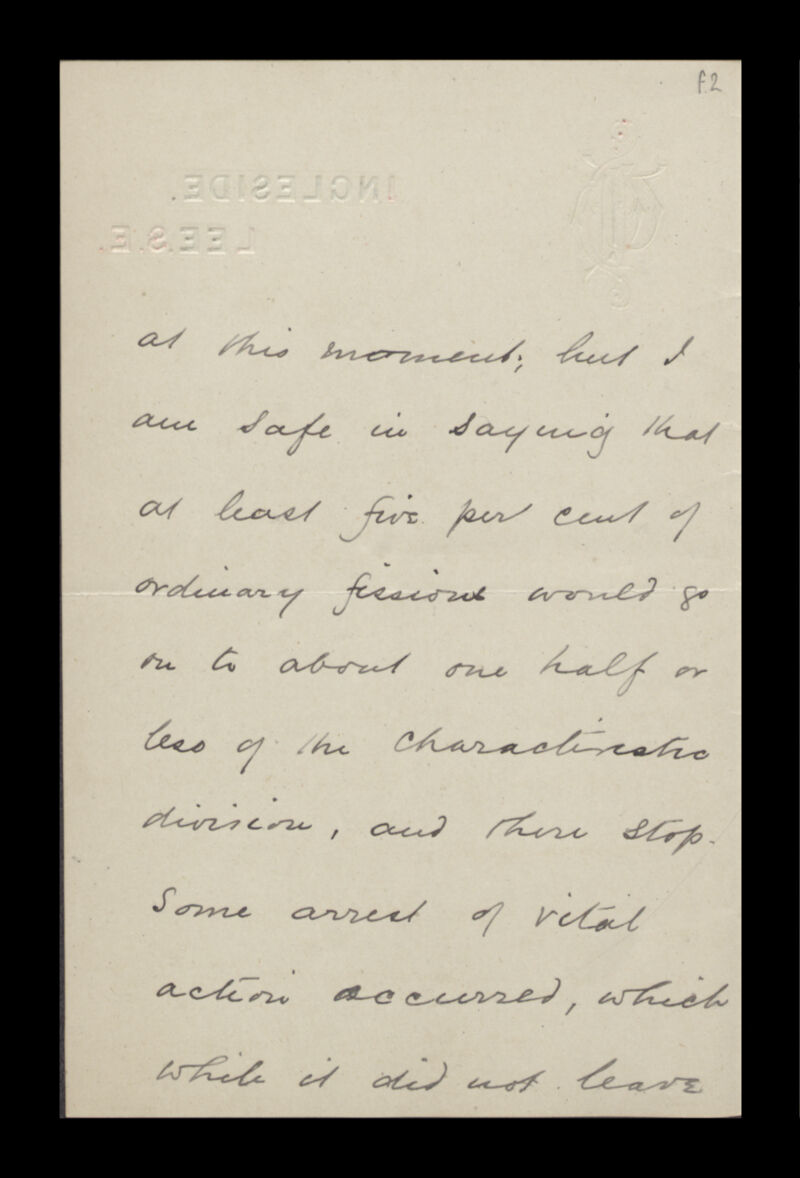 f.2
INGLESIDE.
LEE.S.E.
at this moment; but I
am safe in saying that
at least five per cent of
ordinary fissions would go
on to about one half or
less of the characteristic
division, and there stop.
Some arrest of vital
action occurred, which
while it did not leave